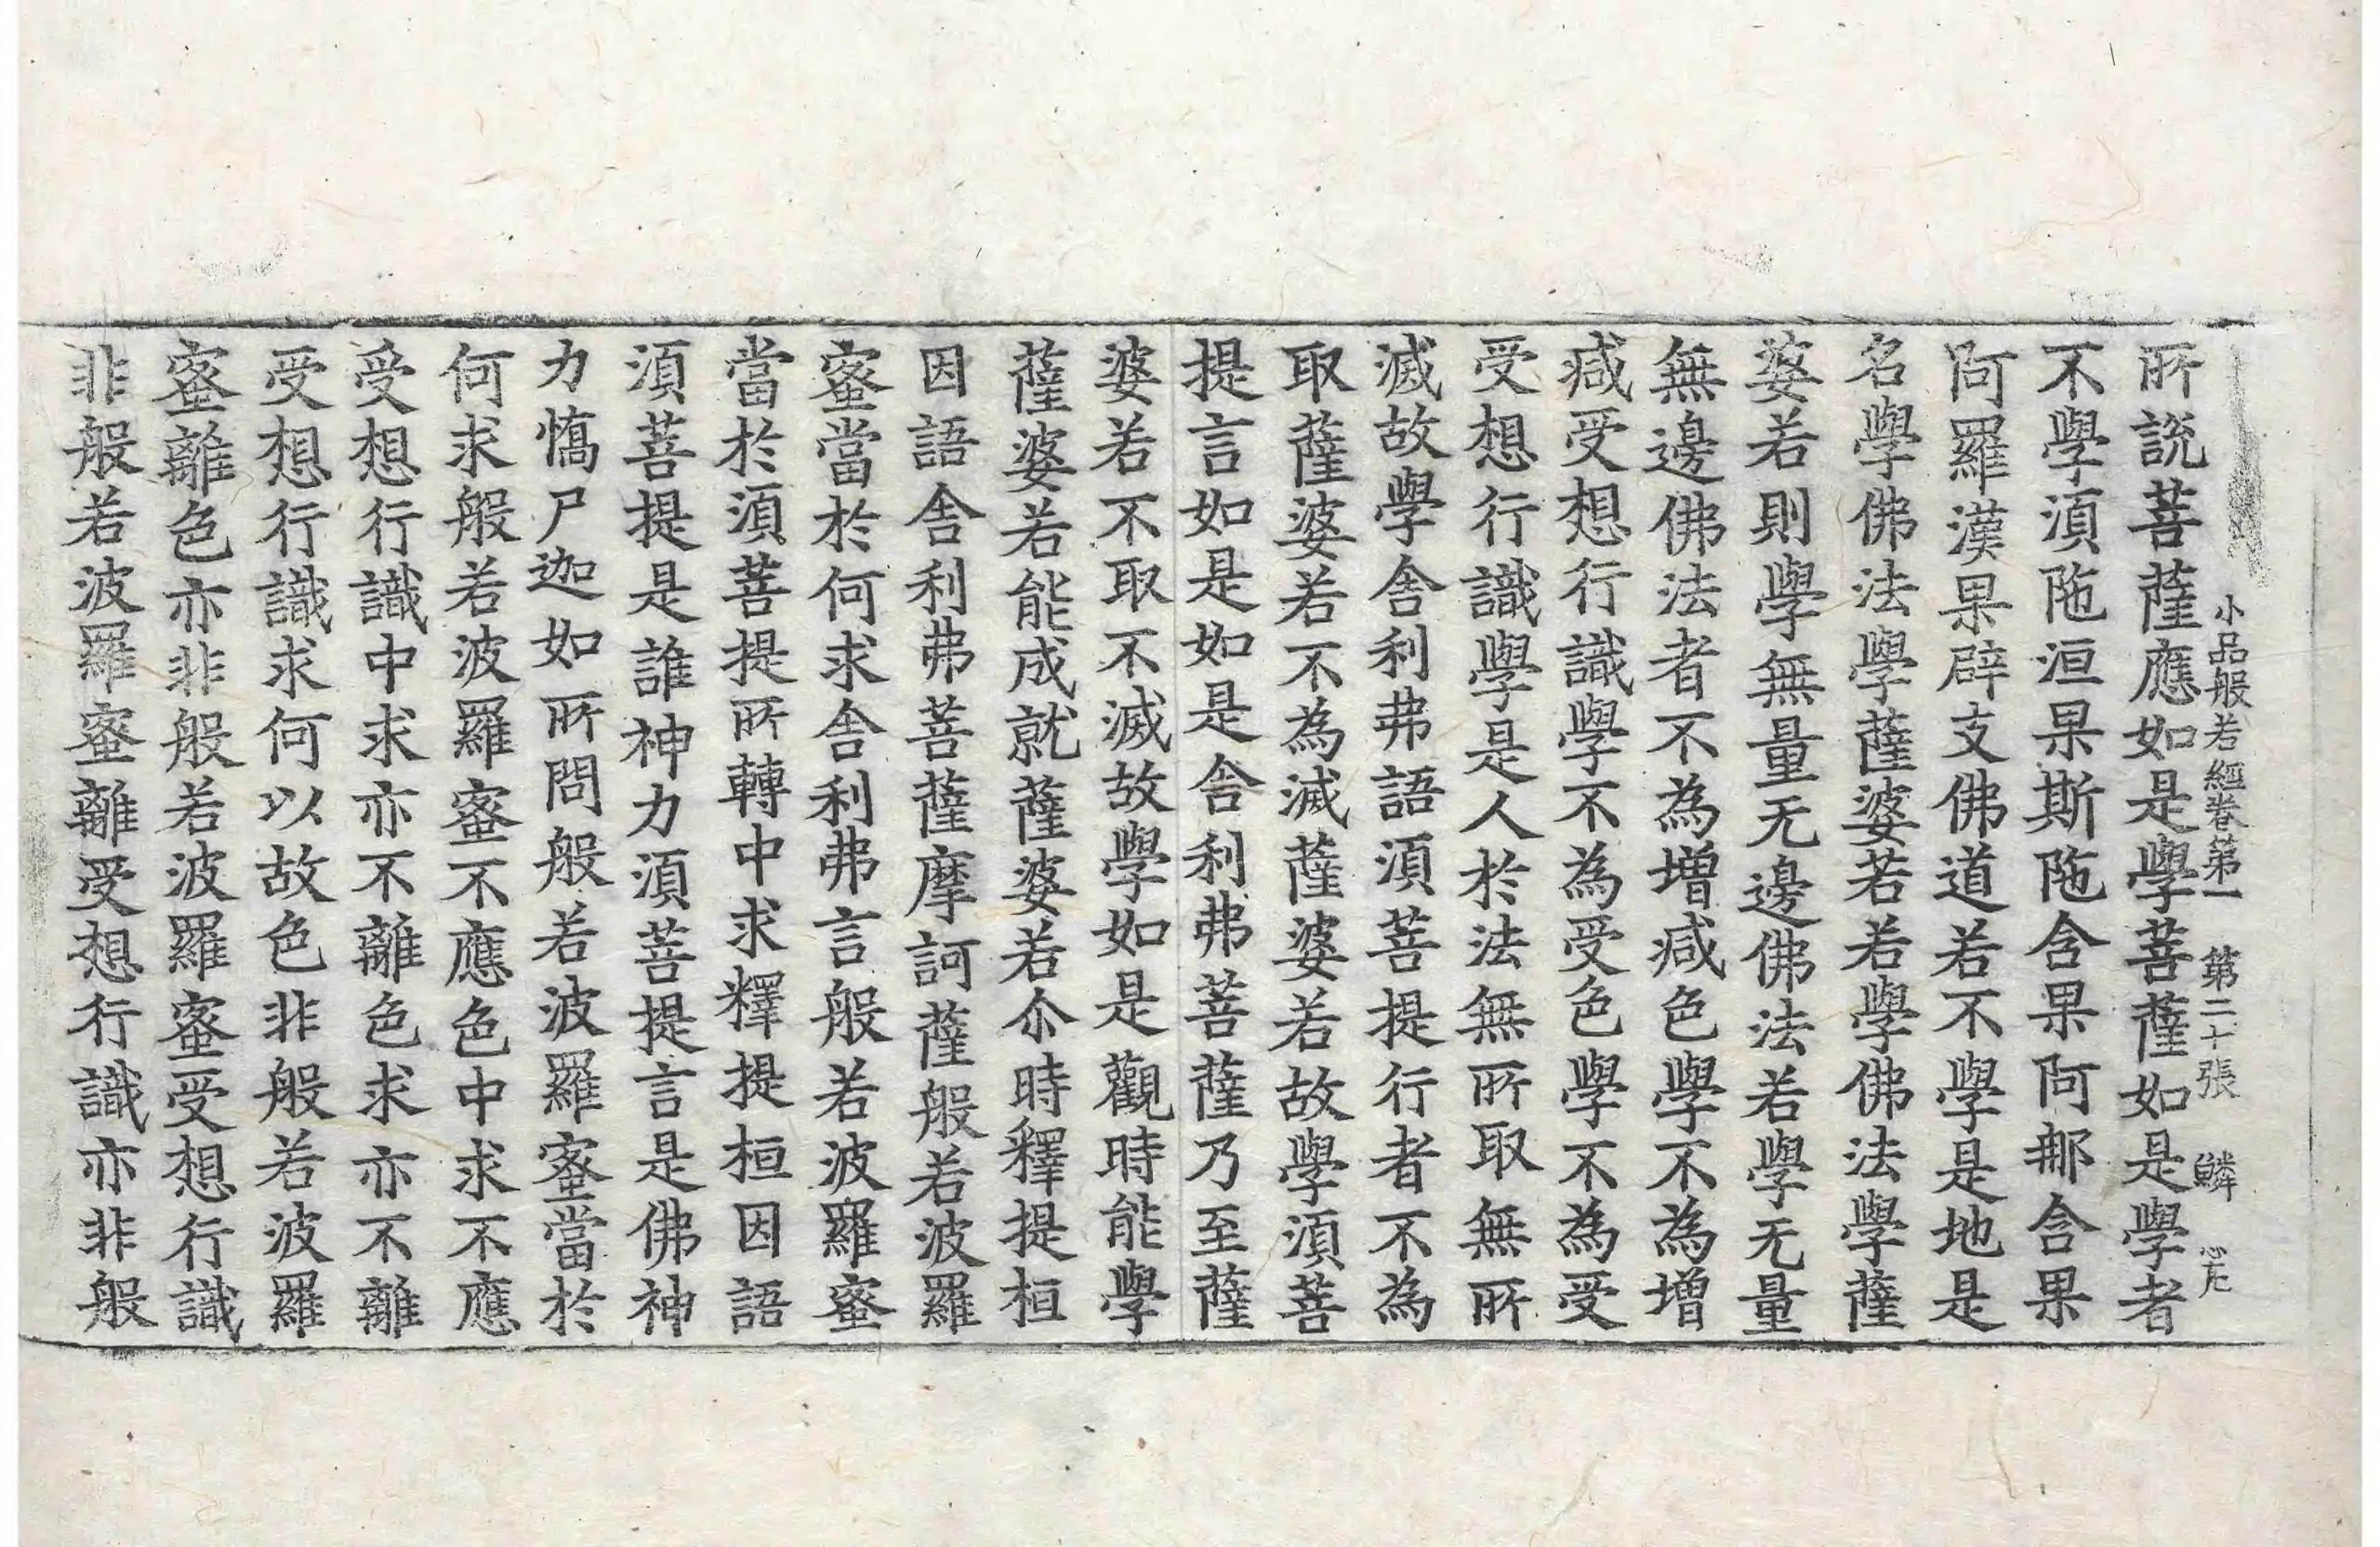 小品般若經卷第一 第二十張 鱗
所說菩薩應如是學菩薩如是學者
不學湏陁洹果斯陁含果阿那含果
阿羅漢果辟支佛道若不學是地是
名學佛法學薩婆若若學佛法學薩
婆若則學無量无邊佛法若學无量
無邊佛法者不為增减色學不為增
减受想行識學不為受色學不為受
受想行識學是人於法無所取無所
滅故學舍利弗語湏菩提行者不為
取薩婆若不為滅薩婆若故學湏菩
提言如是如是舍利弗菩薩乃至薩
婆若不取不滅故學如是觀時能學
薩婆若能成就薩婆若尒時釋提桓
因語舍利弗菩薩摩訶薩般若波羅
蜜當於何求舍利弗言般若波羅蜜
當於湏菩提所轉中求釋提桓因語
湏菩提是誰神力湏菩提言是佛神
力憍尸迦如所問般若波羅蜜當於
何求般若波羅蜜不應色中求不應
受想行識中求亦不離色求亦不離
受想行識求何以故色非般若波羅
蜜離色亦非般若波羅蜜受想行識
非般若波羅蜜離受想行識亦非般